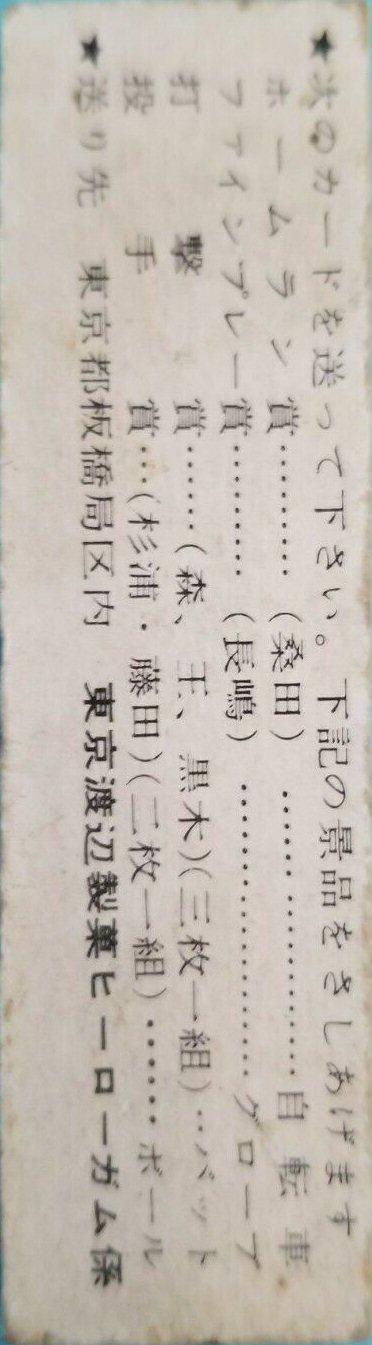 ★次のカードを送って下さい。下記の景品をさしあげます
ホームラン賞…………(桑田)………………自転車
ファインプレー賞…………(長嶋)…………………グローブ
打撃賞……(森、王、黒木)(三枚一組)‥バット
投手賞…(杉浦・藤田)(二枚一組)……ボール
★送り先 東京都板橋局区内 東京渡辺製菓ヒーローガム係